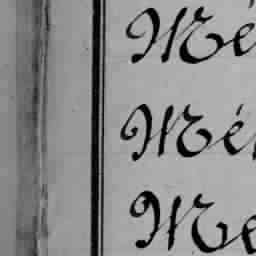 Mé
Mé
Me